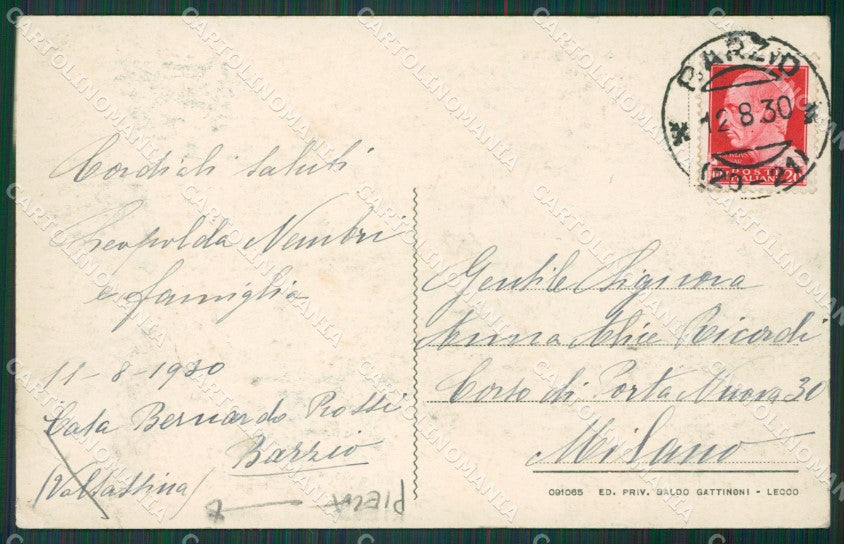 Cordiali saluti
Leopolda Nembri
e famiglia
11-8-1930
Casa Bernardo Rossi
Barzio
(Valsassina)
PIEGA
BARZIO
12.8.30
(20-21)
POSTE
ITALIANE 20
Gentile Signora
Anna Alice Ricordi
Corso di Porta Nuova 30
Milano
091065 ED. PRIV. BALDO GATTINONI - LECCO
CARTOLINOMANIA